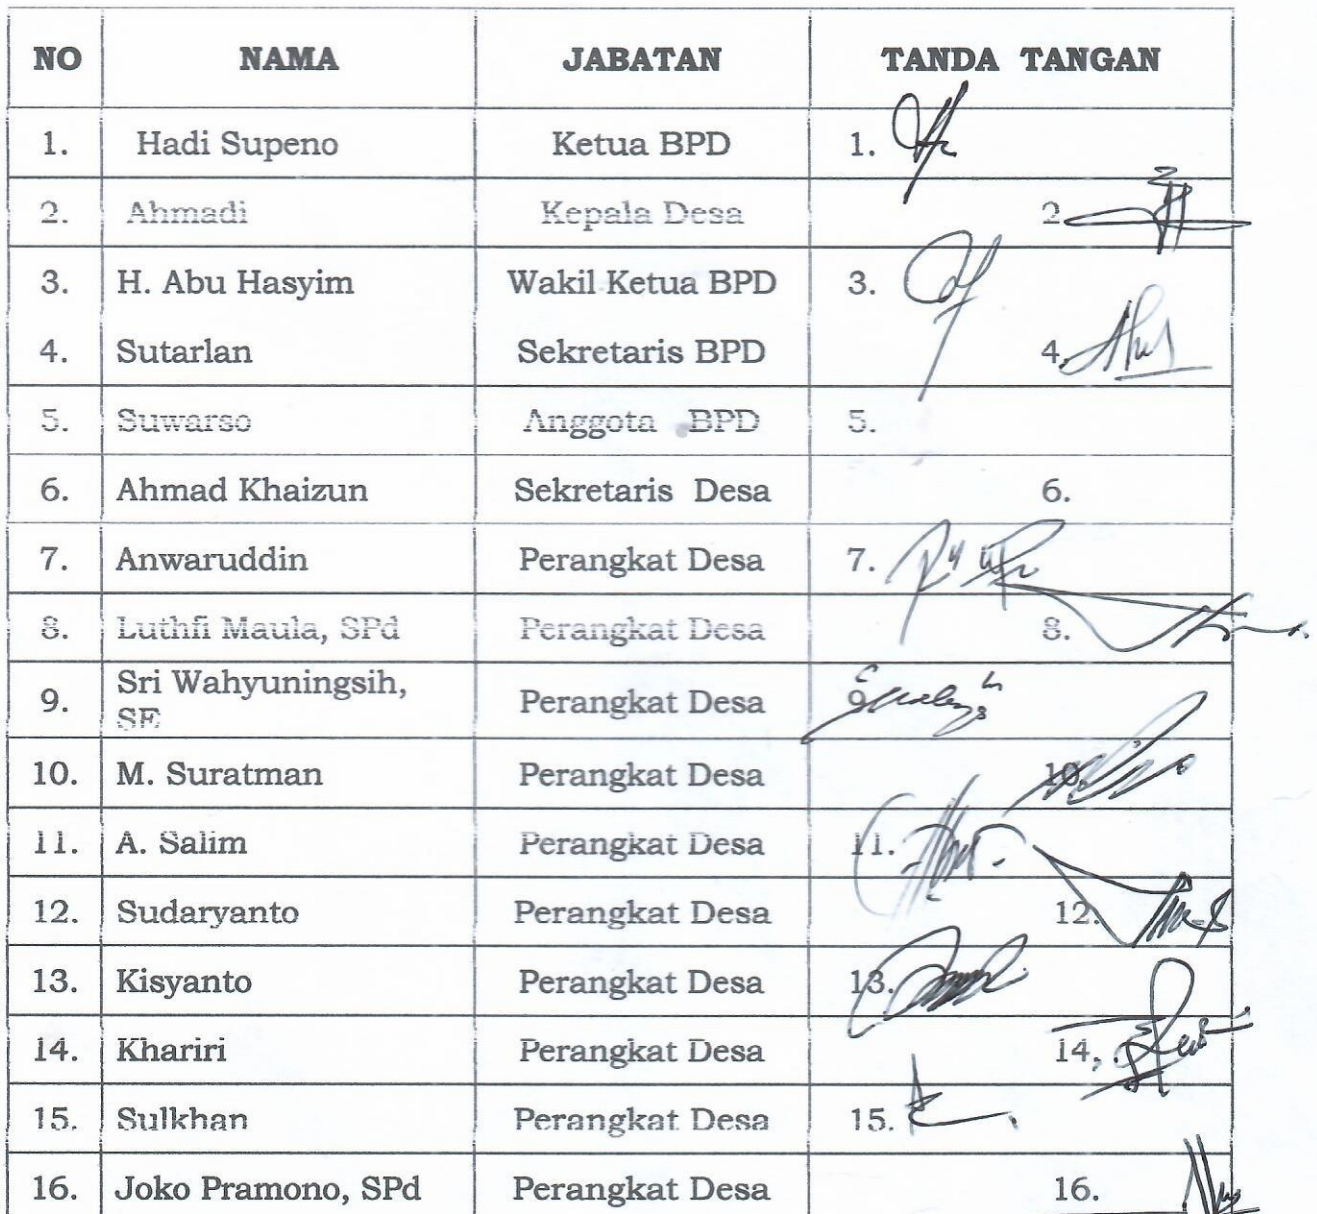 NO NAMA JABATAN TANDA TANGAN
1. Hadi Supeno Ketua BPD 1.
2. Ahmadi Kepala Desa 2.
3. H. Abu Hasyim Wakil Ketua BPD 3.
4. Sutarlan Sekretaris BPD 4.
5. Suwarso Anggota BPD 5.
6. Ahmad Khaizun Sekretaris Desa 6.
7. Anwaruddin Perangkat Desa 7.
8. Luthfi Maula, SPd Perangkat Desa 8.
9. Sri Wahyuningsih, SE Perangkat Desa 9.
10. M. Suratman Perangkat Desa 10.
11. A. Salim Perangkat Desa 11.
12. Sudaryanto Perangkat Desa 12.
13. Kisyanto Perangkat Desa 13.
14. Khariri Perangkat Desa 14.
15. Sulkhan Perangkat Desa 15.
16. Joko Pramono, SPd Perangkat Desa 16.